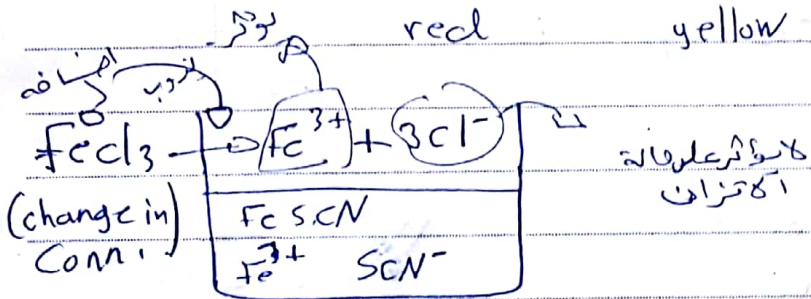 red yellow
تؤثر
اضافه يذوب
FeCl3 → Fe3+ + 3Cl-
لا يؤثر على حالة
الاتزان
(change in)
Conn.
FeSCN
Fe3+ SCN-